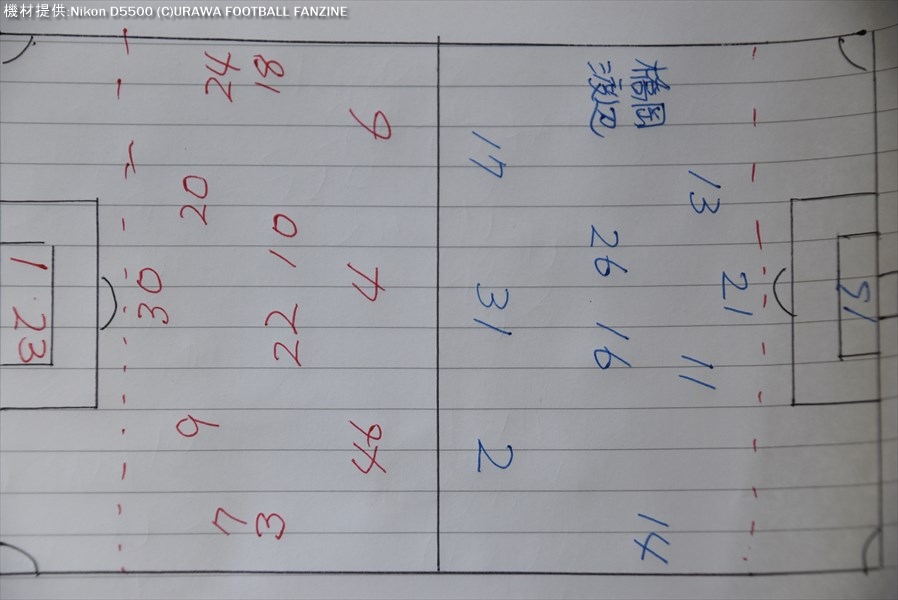 機材提供:Nikon D5500 (C)URAWA FOOTBALL FANZINE
24
18
6
20
10
4
30
22
1
23
9
44
7
3
橋岡
渡辺
17
13
26
21
31
16
11
2
14
51